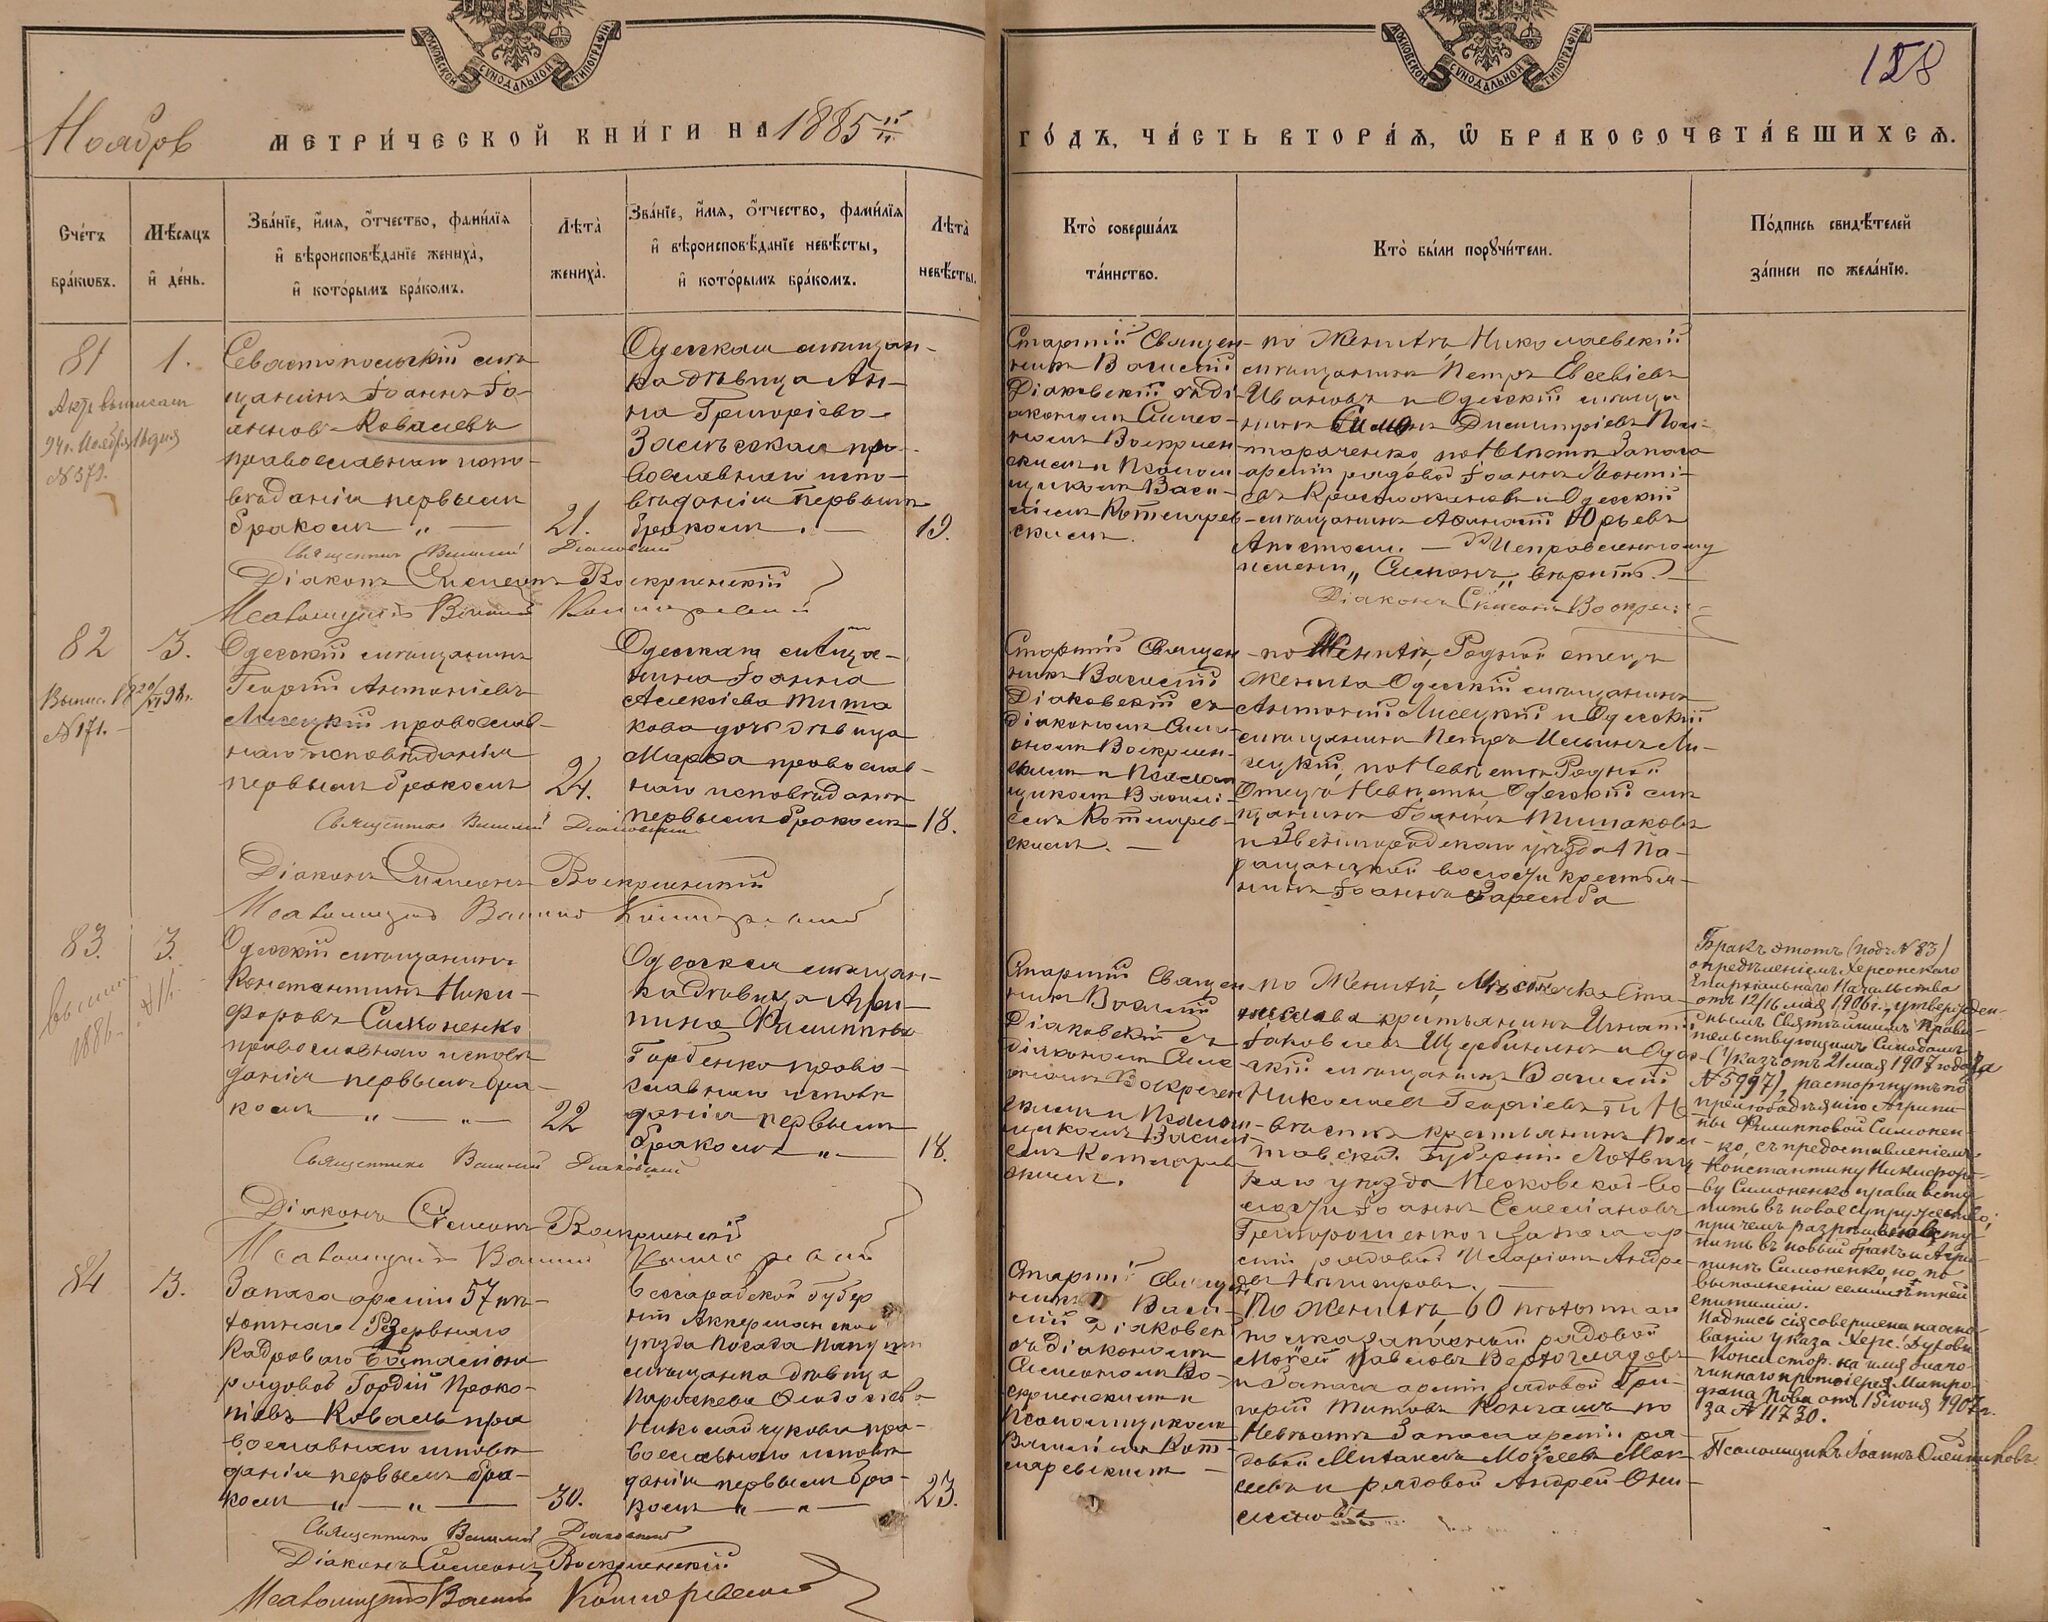 158
МОСКОВСКОЙ СѴНОДАЛЬНОЙ ТИПОГРАФІИ
МОСКОВСКОЙ СѴНОДАЛЬНОЙ ТИПОГРАФІИ
Ноябрь МЕТРИ́ЧЕСКОЙ КНИ́ГИ НА 1885
ГО́ДЪ, ЧА́СТЬ ВТОРА́Ѧ, Ѿ БРАКОСОЧЕТА́ВШИХСѦ.
Сче́тъ бра́кѡвъ.
Мѣ́сяцъ и҆ де́нь.
Зва́нїе, и҆́мѧ, ѻ҆́тчество, фами́лїѧ
и҆ вѣроисповѣ́данїе жениха̀,
и҆ кото́рымъ бра́комъ.
Лѣта̀ жениха̀.
Зва́нїе, и҆́мѧ, ѻ҆́тчество, фами́лїѧ
и҆ вѣроисповѣ́данїе невѣ́сты,
и҆ кото́рымъ бра́комъ.
Лѣта̀ невѣ́сты.
Кто̀ соверша́лъ
та́инство.
Кто̀ бы́ли порꙋчи́тели.
По́дпись свидѣ́телей
за́писи по жела́нїю.
81
1.
Севастопольскій мѣ-
щанинъ Іоаннъ Іо-
анновъ Ковалевъ
православнаго испо-
вѣданія первымъ
бракомъ
21.
Одесская мѣщан-
ка дѣвица Ан-
на Григоріева
пра-
вославнаго испо-
вѣданія первымъ
бракомъ.
19.
Старшій Священ-
никъ Василій
Діаковскій съ ді-
акономъ Симео-
номъ Воскресен-
скимъ и Псалом-
щикомъ Васи-
ліемъ Котляров-
скимъ.
по Женихѣ, Николаевскій
мѣщанинъ Петръ Евсевіевъ
Ивановъ и Одесскій мѣща-
нинъ Симеонъ Димитріевъ Пон-
помароченко, по Невѣстѣ Запаса
арміи рядовой Іоаннъ
и Одесскій
мѣщанинъ Юрьевъ
Апостоли. — Исправленному
имени „Симеонъ„ вѣрить.
Діаконъ Симеонъ Воскресен
Священникъ Василій Діаковскій
Діаконъ Симеонъ Воскресенскій
Псаломщикъ Василій Котляревскій
82
3.
№171.
Одесскій мѣщанинъ
Георгій Антоніевъ
Лисецкій православ-
наго исповѣданія
первымъ бракомъ
24.
Одесскаго мѣща-
нина Іоанна
Алексіева Тита-
кова дочь дѣвица
Марѳа православ-
наго исповѣданія
первымъ бракомъ
18.
Старшій Священ-
никъ Василій
Діаковскій съ
діакономъ Симе-
ономъ Воскресен-
скимъ и Псалом-
щикомъ Василі-
емъ Котляров-
скимъ. —
по Женихѣ, Родной отецъ
жениха Одесскій мѣщанинъ
Антоній Лисецкій и Одесскій
мѣщанинъ Петръ Ильинъ Ли-
сецкій, по Невѣстѣ Родной
Отецъ Невѣсты, Одесскій мѣ-
щанинъ Іоаннъ Титаковъ
и Звенигородскаго уѣзда
волости крестья-
нинъ Іоаннъ Заремба
Священникъ Василій Діаковскій
Діаконъ Симеонъ Воскресенскій
Псаломщикъ Василій Котляревскій
83.
3.
1886.
Одесскій мѣщанинъ
Константинъ Ники-
форовъ Симоненко
православнаго исповѣ-
данія первымъ бра-
комъ
22
Одесская мѣщан-
ка дѣвица Агри-
пина Филиппова
Горбенко право-
славнаго исповѣ-
данія первымъ
бракомъ
18.
Старшій Священ-
никъ Василій
Діаковскій съ
діакономъ Симе-
ономъ Воскресен-
скимъ и Псалом-
щикомъ Василі-
емъ Котляров-
скимъ.
по Женихѣ, Мѣстечка
крестьянинъ Игнатій
Іаковлевъ Щербининъ и Одес-
скій мѣщанинъ Василій
Николаевъ Георгіевъ, по Не-
вѣстѣ крестьянинъ Пол-
тавской Губерніи
уѣзда Песковской во-
лости Іоаннъ Емеліановъ
Григорошенко и запаса ар-
міи рядовой Иларіонъ Андре-
евъ
Бракъ этотъ (подъ №83)
опредѣленіемъ Херсонскаго
Епархіальнаго Начальства
отъ 12/16 мая 1906 г., утвержден-
нымъ Святѣйшимъ Прави-
тельствующимъ Синодомъ
(Указъ отъ 21 мая 1907 года за
№5997), расторгнутъ по
прелюбодѣянію Агрипи-
ны Филипповой Симонен-
ко, съ предоставленіемъ
Константину Никифоро-
ву Симоненко права всту-
пить въ новое супружество;
причемъ разрѣшено всту-
пить въ новый бракъ и Агри-
пинѣ Симоненко, но по
выполненіи семилѣтней
епитиміи.
Надпись сія совершена на осно-
ваніи указа Херс. Духовн.
Консистор. на имя благо-
чиннаго протоіерея Митро-
фана Попова отъ 15 іюня 1907 г.
за №11730.
Псаломщикъ Іоаннъ Олейниковъ.
Священникъ Василій Діаковскій
Діаконъ Симеонъ Воскресенскій
Псаломщикъ Василій Котляревскій
84
3.
Запаса арміи 57 пѣ-
хотнаго Резервнаго
Кадроваго Баталіона
рядовой Гордій Проко-
піевъ Коваль пра-
вославнаго исповѣ-
данія первымъ бра-
комъ
30.
Бессарабской губер-
ніи Аккерманскаго
уѣзда посада Папушой
мѣщанка дѣвица
Параскева Ѳеодосіева
Николайчукова пра-
вославнаго исповѣ-
данія первымъ бра-
комъ
23.
Старшій Священ-
никъ Васи-
лій Діаковскій
съ діакономъ
Симеономъ Во-
скресенскимъ и
Псаломщикомъ
Василіемъ Кот-
ляревскимъ —
По Женихѣ, 60 пѣхотнаго
полка запасный рядовой
Мойсей Павловъ Верхоглядовъ
и Запаса арміи рядовой Гри-
горій Титовъ по
Невѣстѣ Запаса арміи ря-
довой Михаилъ Мойсеевъ Мои-
сеевъ и рядовой Андрей Они-
симовъ
Священникъ Василій Діаковскій
Діаконъ Симеонъ Воскресенскій
Псаломщикъ Василій Котляревскій